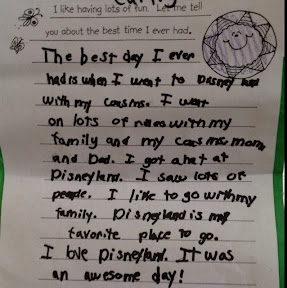 I like having lots of fun. Let me tell
you about the best time I ever had.
The best day I ever
had is when I went to Disney land
with my cousins. I went
on lots of rides with my
family and my cousins mom
and Dad. I got a hat at
Disneyland. I saw lots of
people. I like to go with my
family. Disneyland is my
favorite place to go.
I love Disneyland. It was
an awesome day!